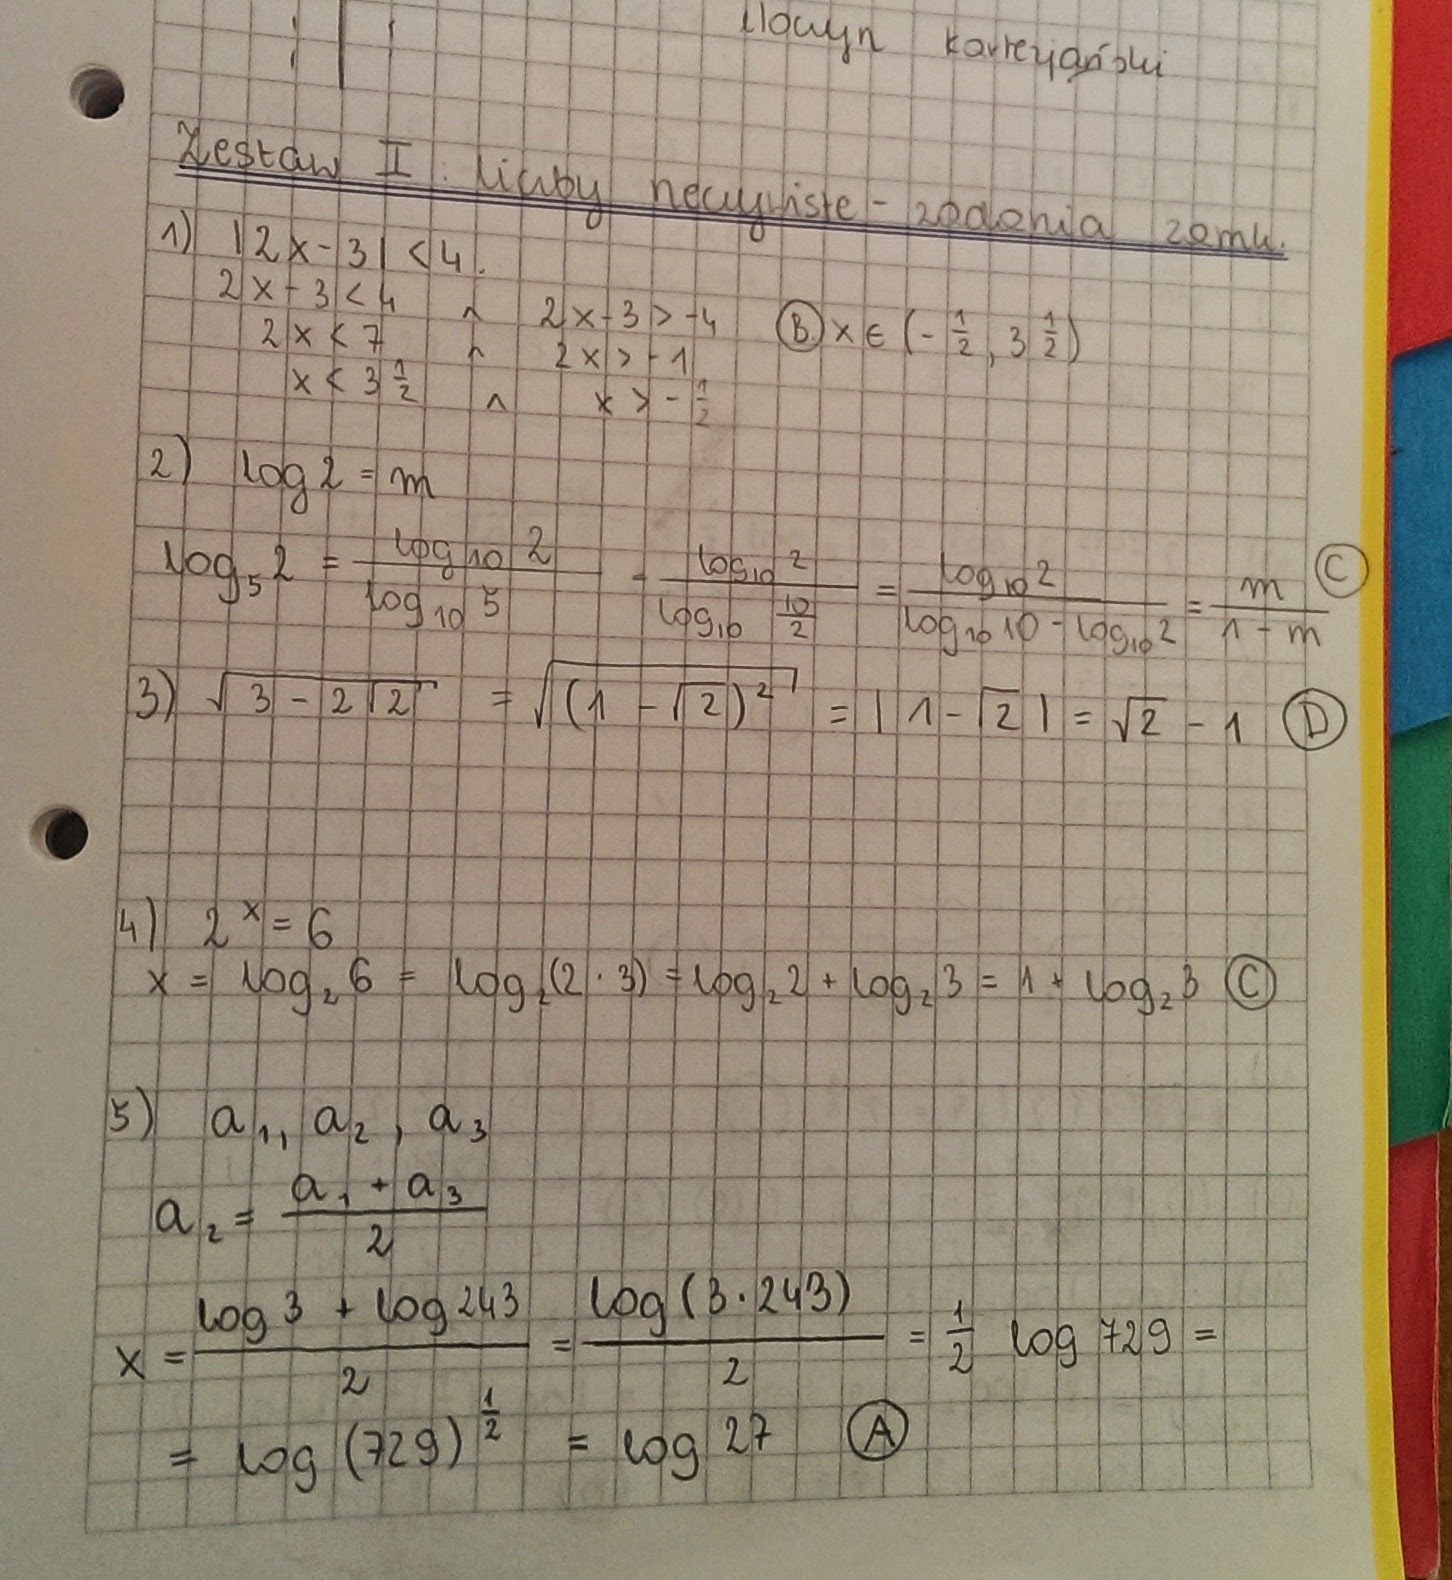 iloczyn kartezjański
Zestaw II. liczby rzeczywiste - zadania zamk.
1) |2x-3| < 4.
2x-3 < 4 ∧ 2x-3 > -4 B. x ∈ (-1/2, 3 1/2)
2x < 7 ∧ 2x > -1
x < 3 1/2 ∧ x > -1/2
2) log 2 = m
log₅2 = log₁₀2 / log₁₀5 = log₁₀2 / log₁₀(10/2) = log₁₀2 / (log₁₀10 - log₁₀2) = m / (1-m) C
3) √(3-2√2) = √((1-√2)²) = |1-√2| = √2 - 1 D
4) 2ˣ = 6
x = log₂6 = log₂(2·3) = log₂2 + log₂3 = 1 + log₂3 C
5) a₁, a₂, a₃
a₂ = (a₁ + a₃) / 2
x = (log3 + log243) / 2 = log(3·243) / 2 = 1/2 log 729 =
= log(729)^(1/2) = log 27 A